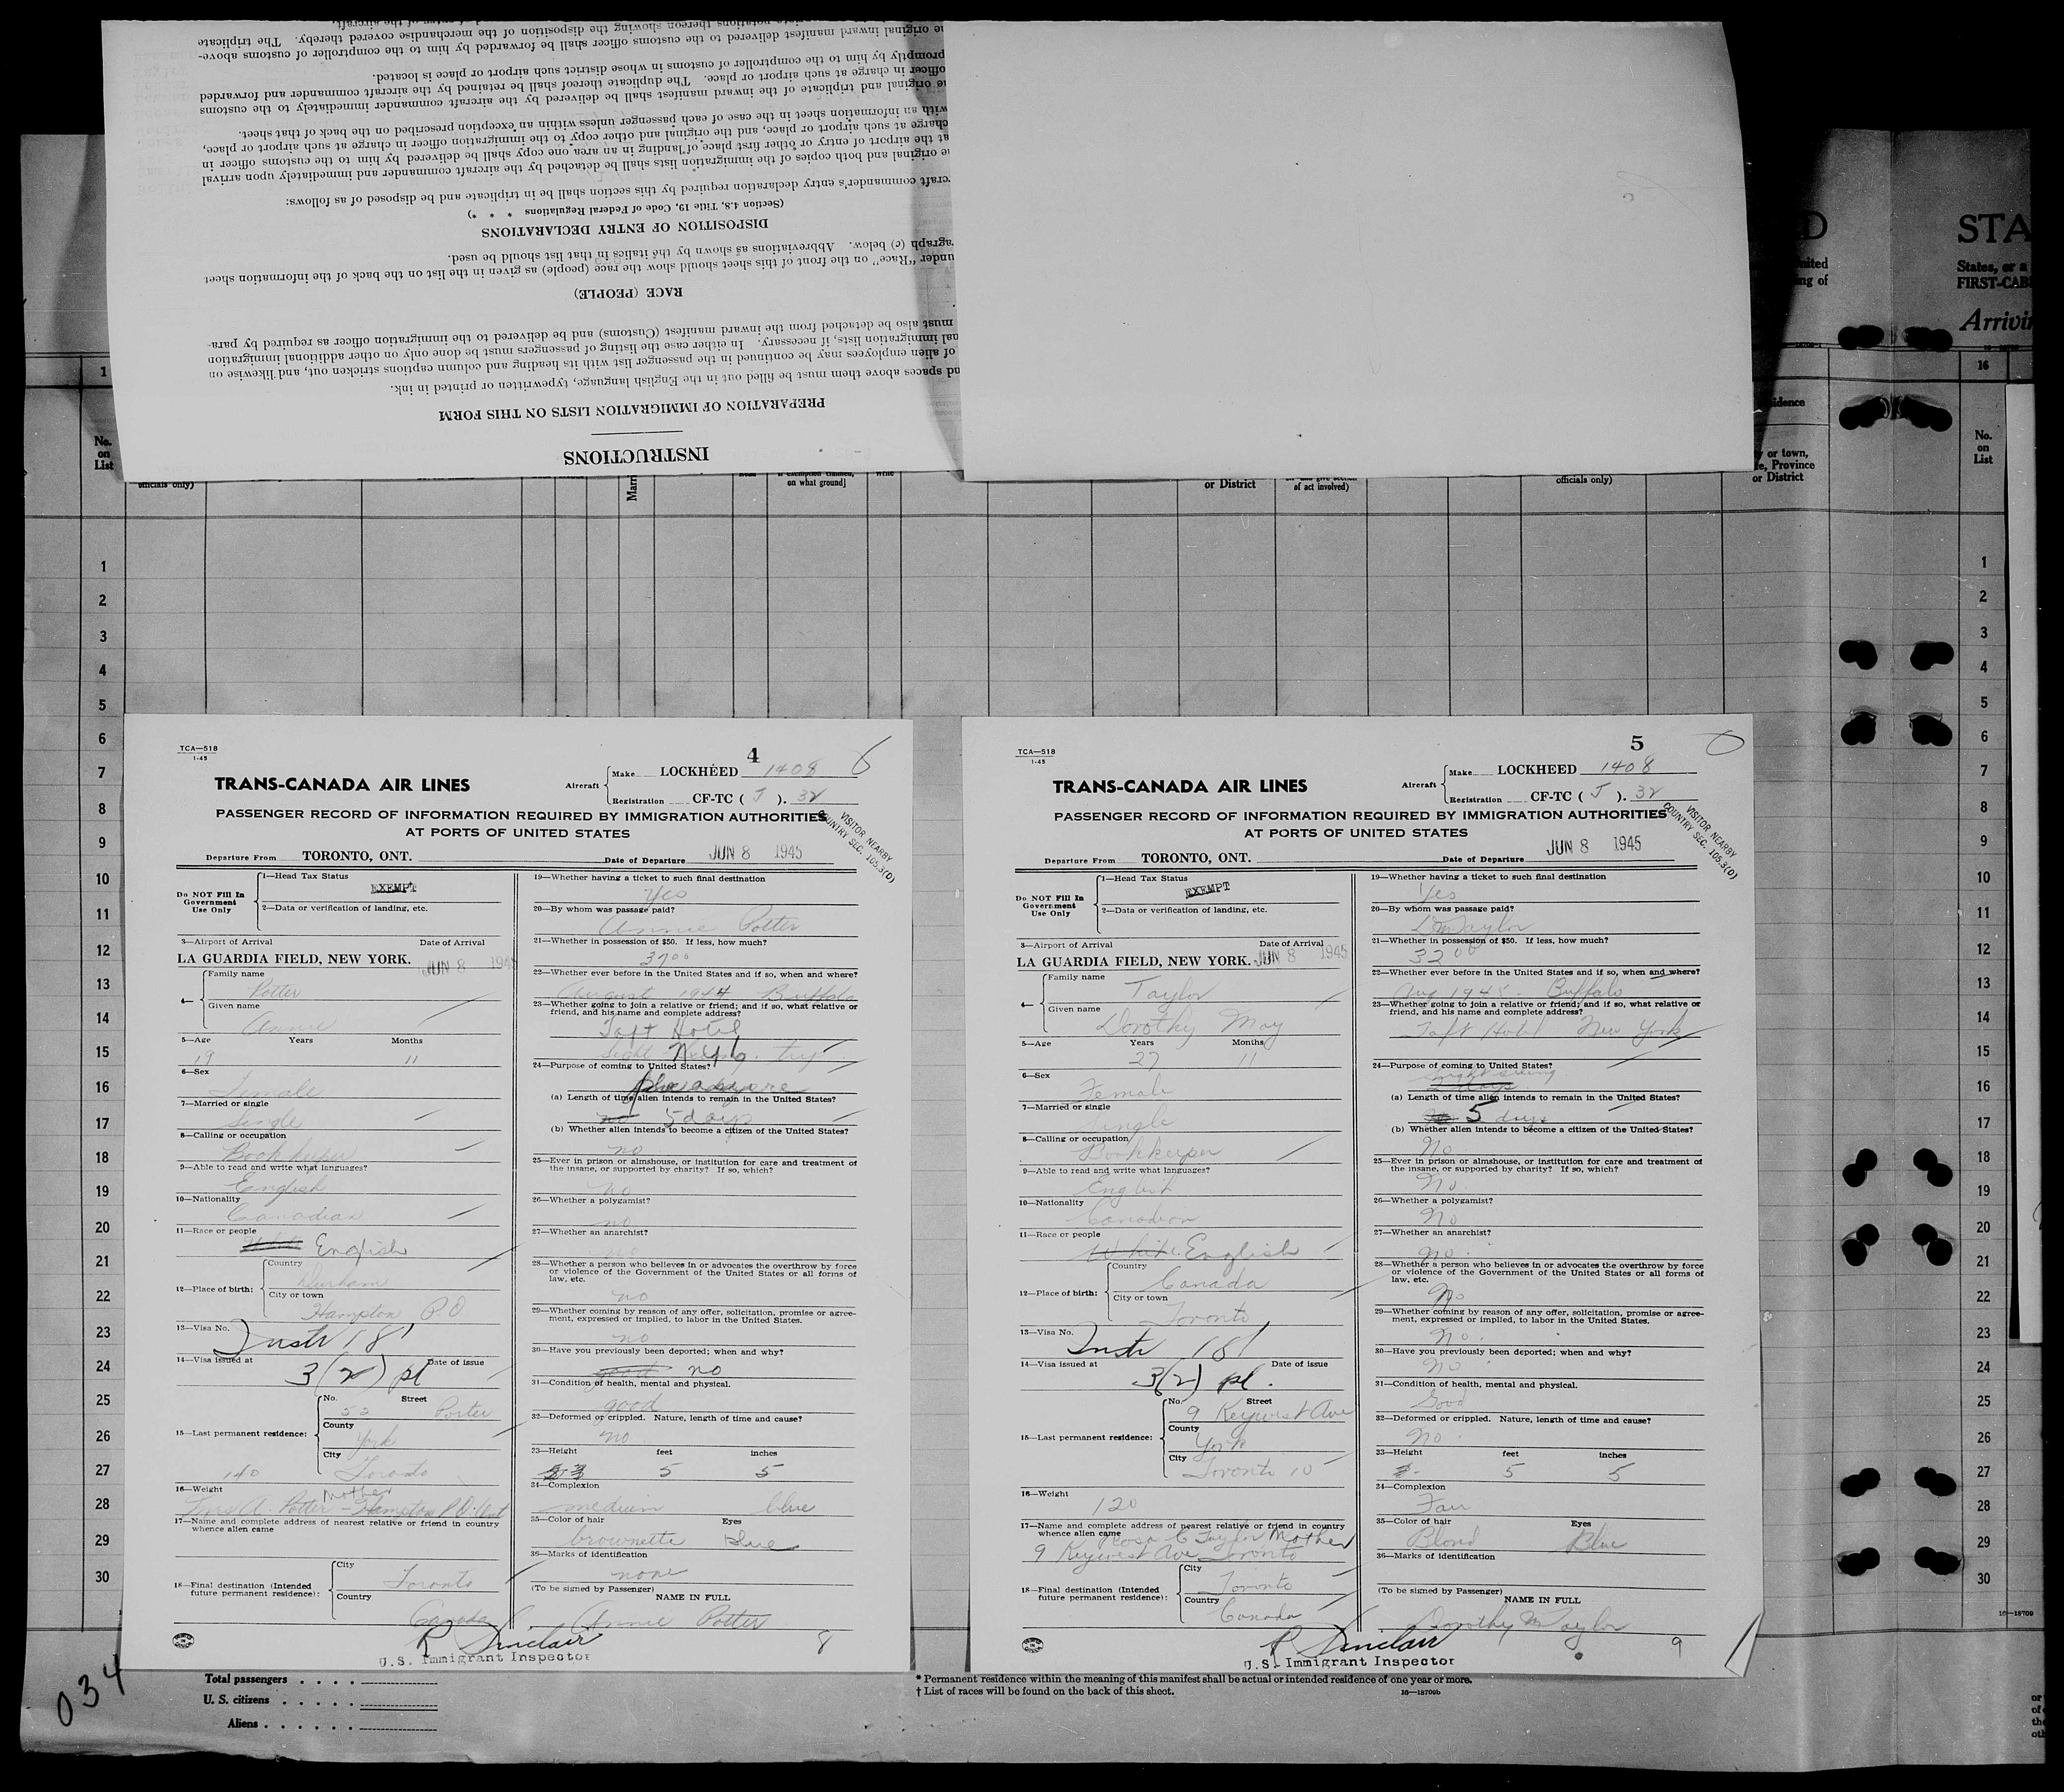 INSTRUCTIONS
PREPARATION OF IMMIGRATION LISTS ON THIS FORM
nd spaces above them must be filled out in the English language, typewritten or printed in ink.
of alien employees may be continued in the passenger list with its heading and column captions stricken out, and likewise on
nal immigration lists, if necessary. In either case the listing of passengers must be done only on other additional immigration
must also be detached from the inward manifest (Customs) and be delivered to the immigration officer as required by para-
RACE (PEOPLE)
under "Race" on the front of this sheet should show the race (people) as given in the list on the back of the information sheet
agraph (c) below. Abbreviations as shown by the italics in that list should be used.
DISPOSITION OF ENTRY DECLARATIONS
(Section 4.8, Title 19, Code of Federal Regulations * * *)
rcraft commander's entry declaration required by this section shall be in triplicate and be disposed of as follows:
he original and both copies of the immigration lists shall be detached by the aircraft commander and immediately upon arrival
at the airport of entry or other first place of landing in an area one copy shall be delivered by him to the customs officer in
charge at such airport or place, and the original and other copy to the immigration officer in charge at such airport or place,
with an information sheet in the case of each passenger unless within an exception prescribed on the back of that sheet.
he original and triplicate of the inward manifest shall be delivered by the aircraft commander immediately to the customs
officer in charge at such airport or place. The duplicate thereof shall be retained by the aircraft commander and forwarded
promptly by him to the comptroller of customs in whose district such airport or place is located.
he original inward manifest delivered to the customs officer shall be forwarded by him to the comptroller of customs above-
notations thereon showing the disposition of the merchandise covered thereby. The triplicate
D
STA
nited
ing of
States, or a
FIRST-CAB
Arrivin
1
16
idence
No.
on
List
officials only)
on what ground]
or District
of act involved)
officials only)
y or town,
e, Province
or District
No.
on
List
1
2
3
4
5
6
7
8
9
10
11
12
13
14
15
16
17
18
19
20
21
22
23
24
25
26
27
28
29
30
TCA—518
1-45
4
6
TRANS-CANADA AIR LINES
Aircraft
Make LOCKHEED 1408
Registration CF-TC ( J ). 32
PASSENGER RECORD OF INFORMATION REQUIRED BY IMMIGRATION AUTHORITIES
AT PORTS OF UNITED STATES
VISITOR NEARBY
COUNTRY SEC. 105.3(D)
Departure From TORONTO, ONT.
Date of Departure JUN 8 1945
Do NOT Fill In
Government
Use Only
1—Head Tax Status
EXEMPT
2—Data or verification of landing, etc.
3—Airport of Arrival Date of Arrival
LA GUARDIA FIELD, NEW YORK. JUN 8 1945
4—
Family name
Potter
Given name
Annie
5—Age Years Months
19 11
6—Sex
Female
7—Married or single
Single
8—Calling or occupation
Bookkeeper
9—Able to read and write what languages?
English
10—Nationality
Canadian
11—Race or people
English
12—Place of birth:
Country
Durham
City or town
Hampton P.O
13—Visa No.
Instr 181
14—Visa issued at Date of issue
3(2) pl
15—Last permanent residence:
No. Street
52 Porter
County
York
City
140 Toronto
16—Weight
Mother
Mrs A. Potter - Hampton P.O. Ont
17—Name and complete address of nearest relative or friend in country
whence alien came
18—Final destination (Intended
future permanent residence):
City
Toronto
Country
Canada
19—Whether having a ticket to such final destination
Yes
20—By whom was passage paid?
Annie Potter
21—Whether in possession of $50. If less, how much?
3700
22—Whether ever before in the United States and if so, when and where?
August 1944 Buffalo
23—Whether going to join a relative or friend; and if so, what relative or
friend, and his name and complete address?
Taft Hotel
NYC
24—Purpose of coming to United States?
pleasure
(a) Length of time alien intends to remain in the United States?
no 5 days
(b) Whether alien intends to become a citizen of the United States?
no
25—Ever in prison or almshouse, or institution for care and treatment of
the insane, or supported by charity? If so, which?
no
26—Whether a polygamist?
no
27—Whether an anarchist?
no
28—Whether a person who believes in or advocates the overthrow by force
or violence of the Government of the United States or all forms of
law, etc.
no
29—Whether coming by reason of any offer, solicitation, promise or agree-
ment, expressed or implied, to labor in the United States.
no
30—Have you previously been deported; when and why?
good no
31—Condition of health, mental and physical.
good
32—Deformed or crippled. Nature, length of time and cause?
no
33—Height feet inches
5 5
34—Complexion
medium blue
35—Color of hair Eyes
brownette blue
36—Marks of identification
none
(To be signed by Passenger)
NAME IN FULL
Annie Potter
R Sinclair
U.S. Immigrant Inspector
8
TCA—518
1-45
5
TRANS-CANADA AIR LINES
Aircraft
Make LOCKHEED 1408
Registration CF-TC ( J ). 32
PASSENGER RECORD OF INFORMATION REQUIRED BY IMMIGRATION AUTHORITIES
AT PORTS OF UNITED STATES
VISITOR NEARBY
COUNTRY SEC. 105.3(D)
Departure From TORONTO, ONT.
Date of Departure JUN 8 1945
Do NOT Fill In
Government
Use Only
1—Head Tax Status
EXEMPT
2—Data or verification of landing, etc.
3—Airport of Arrival Date of Arrival
LA GUARDIA FIELD, NEW YORK. JUN 8 1945
4—
Family name
Taylor
Given name
Dorothy May
5—Age Years Months
27 11
6—Sex
Female
7—Married or single
Single
8—Calling or occupation
Bookkeeper
9—Able to read and write what languages?
English
10—Nationality
Canadian
11—Race or people
White English
12—Place of birth:
Country
Canada
City or town
Toronto
13—Visa No.
Instr 181
14—Visa issued at Date of issue
3(2) pl.
15—Last permanent residence:
No. Street
9 Keywest Ave
County
York
City
Toronto 10
16—Weight
120
17—Name and complete address of nearest relative or friend in country
whence alien came
Rosa C Taylor Mother
9 Keywest Ave Toronto
18—Final destination (Intended
future permanent residence):
City
Toronto
Country
Canada
19—Whether having a ticket to such final destination
Yes
20—By whom was passage paid?
D M Taylor
21—Whether in possession of $50. If less, how much?
3200
22—Whether ever before in the United States and if so, when and where?
Aug 1945 - Buffalo
23—Whether going to join a relative or friend; and if so, what relative or
friend, and his name and complete address?
Taft Hotel New York
24—Purpose of coming to United States?
Sight seeing
2 days
(a) Length of time alien intends to remain in the United States?
5 days
(b) Whether alien intends to become a citizen of the United States?
No
25—Ever in prison or almshouse, or institution for care and treatment of
the insane, or supported by charity? If so, which?
No.
26—Whether a polygamist?
No
27—Whether an anarchist?
No.
28—Whether a person who believes in or advocates the overthrow by force
or violence of the Government of the United States or all forms of
law, etc.
No
29—Whether coming by reason of any offer, solicitation, promise or agree-
ment, expressed or implied, to labor in the United States.
No.
30—Have you previously been deported; when and why?
No.
31—Condition of health, mental and physical.
Good
32—Deformed or crippled. Nature, length of time and cause?
No.
33—Height feet inches
5 5
34—Complexion
Fair
35—Color of hair Eyes
Blond Blue
36—Marks of identification
(To be signed by Passenger)
NAME IN FULL
Dorothy M Taylor
R Sinclair
U.S. Immigrant Inspector
9
1
2
3
4
5
6
7
8
9
10
11
12
13
14
15
16
17
18
19
20
21
22
23
24
25
26
27
28
29
30
16—18709
034
Total passengers
U. S. citizens
Aliens
* Permanent residence within the meaning of this manifest shall be actual or intended residence of one year or more.
† List of races will be found on the back of this sheet.
16—18709b